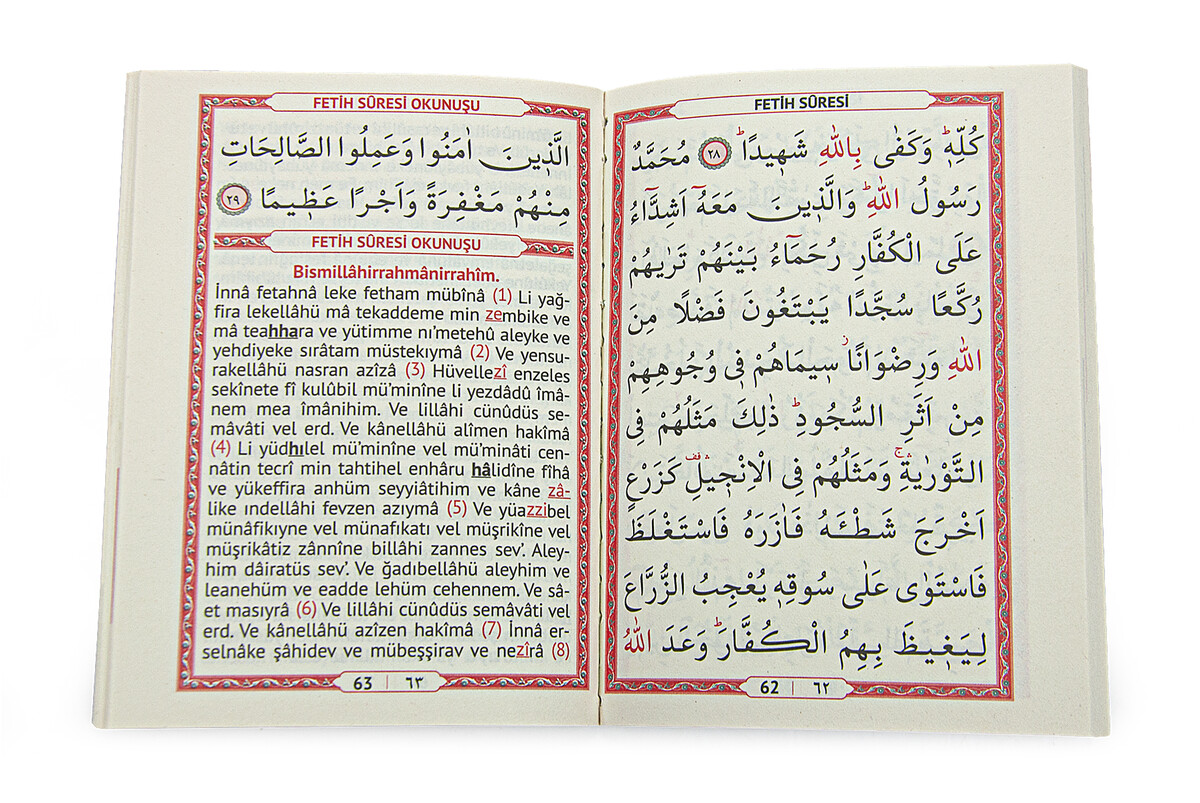 FETİH SÛRESİ
كُلِّهٖۜ وَكَفٰى بِاللّٰهِ شَهٖيدًاۜ ﴿٢٨﴾ مُحَمَّدٌ
رَسُولُ اللّٰهِۜ وَالَّذٖينَ مَعَهُٓ اَشِدَّٓاءُ
عَلَى الْكُفَّارِ رُحَمَٓاءُ بَيْنَهُمْ تَرٰيهُمْ
رُكَّعًا سُجَّدًا يَبْتَغُونَ فَضْلًا مِنَ
اللّٰهِ وَرِضْوَانًاؗ سٖيمَاهُمْ فٖى وُجُوهِهِمْ
مِنْ اَثَرِ السُّجُودِۜ ذٰلِكَ مَثَلُهُمْ فِى
التَّوْرٰيةِۚۛ وَمَثَلُهُمْ فِى الْاِنْجٖيلِ۠ۛ كَزَرْعٍ
اَخْرَجَ شَطْـَٔهُ فَاٰزَرَهُ فَاسْتَغْلَظَ
فَاسْتَوٰى عَلٰى سُوقِهٖ يُعْجِبُ الزُّرَّاعَ
لِيَغٖيظَ بِهِمُ الْكُفَّارَۜ وَعَدَ اللّٰهُ
62 | ٦٢
FETİH SÛRESİ OKUNUŞU
الَّذٖينَ اٰمَنُوا وَعَمِلُوا الصَّالِحَاتِ
مِنْهُمْ مَغْفِرَةً وَاَجْرًا عَظٖيمًا ﴿٢٩﴾
FETİH SÛRESİ OKUNUŞU
Bismillâhirrahmânirrahîm.
İnnâ fetahnâ leke fetham mübînâ (1) Li yağ-
fira lekellâhü mâ tekaddeme min zembike ve
mâ teahhara ve yütimme nı’metehû aleyke ve
yehdiyeke sırâtam müstekıymâ (2) Ve yensu-
rakellâhü nasran azîzâ (3) Hüvellezî enzeles
sekînete fî kulûbil mü’minîne li yezdâdû îmâ-
nem mea îmânihim. Ve lillâhi cünûdüs se-
mâvâti vel erd. Ve kânellâhü alîmen hakîmâ
(4) Li yüdhılel mü’minîne vel mü’minâti cen-
nâtin tecrî min tahtihel enhâru hâlidîne fîhâ
ve yükeffira anhüm seyyiâtihim ve kâne zâ-
like ındellâhi fevzen azıymâ (5) Ve yüazzibel
münâfikıyne vel münafıkati vel müşrikîne vel
müşrikâtiz zânnîne billâhi zannes sev’. Aley-
him dâiratüs sev’. Ve ğadıbellâhü aleyhim ve
leanehüm ve eadde lehüm cehennem. Ve sâ-
et masıyrâ (6) Ve lillâhi cünûdüs semâvâti vel
erd. Ve kânellâhü azîzen hakîmâ (7) İnnâ er-
selnâke şâhidev ve mübeşşirav ve nezîrâ (8)
63 | ٦٣